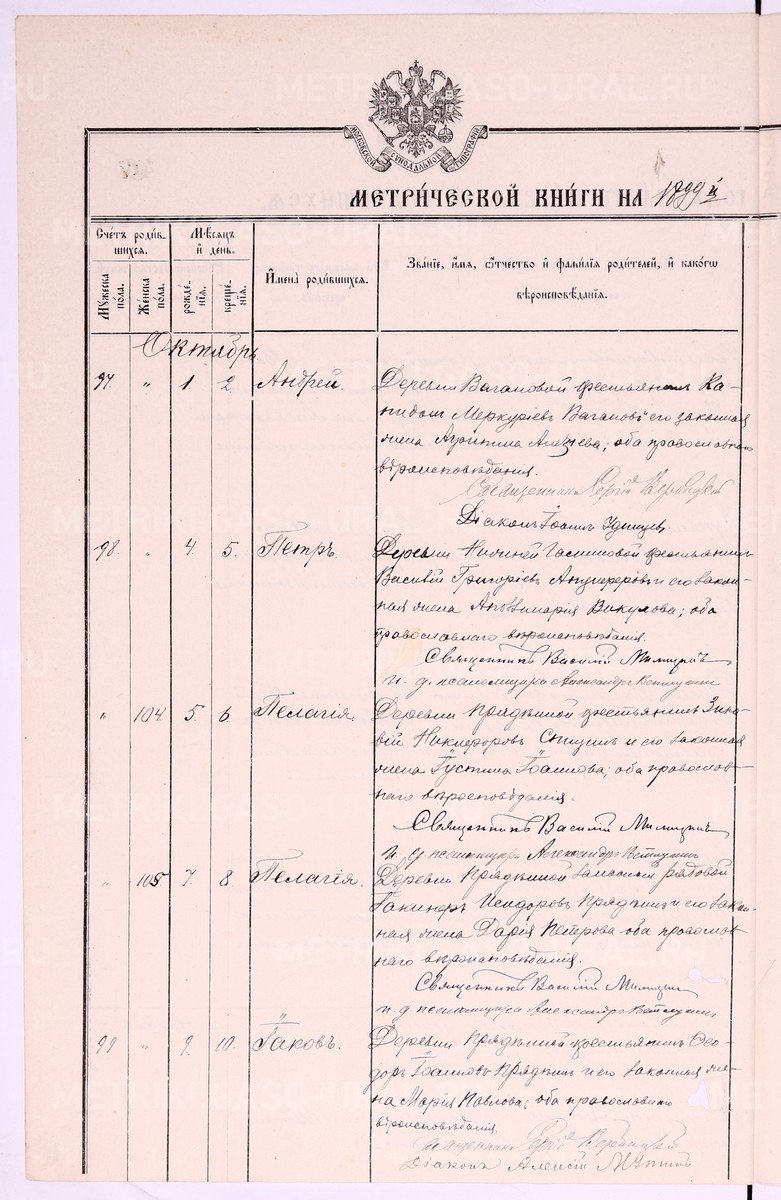 МОСКОВСКОЙ СѴНОДАЛЬНОЙ ТИПОГРАФІИ
МЕТРИ́ЧЕСКОЙ КНИ́ГИ НА 1899 й
Сче́тъ роди́в-
шихся.
Му́жеска
по́ла.
Же́нска
по́ла.
Мѣ́сяцъ
и҆ де́нь.
рожде́-
нїѧ.
креще́-
нїѧ.
И҆мена̀ роди́вшихся.
Зва́нїе, и҆́мѧ, ѻ҆́тчество и҆ фами́лїѧ роди́телей, и҆ како́гѡ
вѣроисповѣ́данїѧ.
Октябрь
97. " 1 2 Андрей. Деревни Вагановой крестьянин Ка-
нидом Меркуріевъ Вагановъ и его законная
жена Агрипина ; оба православнаго
вѣроисповѣданія.
Священникъ Сергій Вербицкій
Діаконъ Іоаннъ
98. " 4. 5. Петръ. Деревни Нижней крестьянинъ
Василій Григоріевъ Анциферовъ и его закон-
ная жена Викулова; оба
православнаго вѣроисповѣданія.
Священникъ Василій
и. д. псаломщика Александръ
" 104 5. 6 Пелагія. Деревни Прядеиной крестьянинъ Зино-
вій Никифоровъ и его законная
жена Іустина Іоаннова; оба православ-
наго вѣроисповѣданія.
Священникъ Василій
и. д. псаломщика Александръ
" 105 7. 8 Пелагія. Деревни Прядеиной запасный рядовой
Исидоровъ Прядеинъ и его закон-
ная жена Дарія Петрова оба православ-
наго вѣроисповѣданія.
Священникъ Василій
и. д. псаломщика Александръ
99 " 9. 10. Іаковъ. Деревни Прядеиной крестьянинъ Ѳео-
доръ Іоанновъ Прядеинъ и его законная же-
на Марія Павлова; оба православнаго
вѣроисповѣданія.
Священникъ Сергій Вербицкій
Діаконъ Алексій